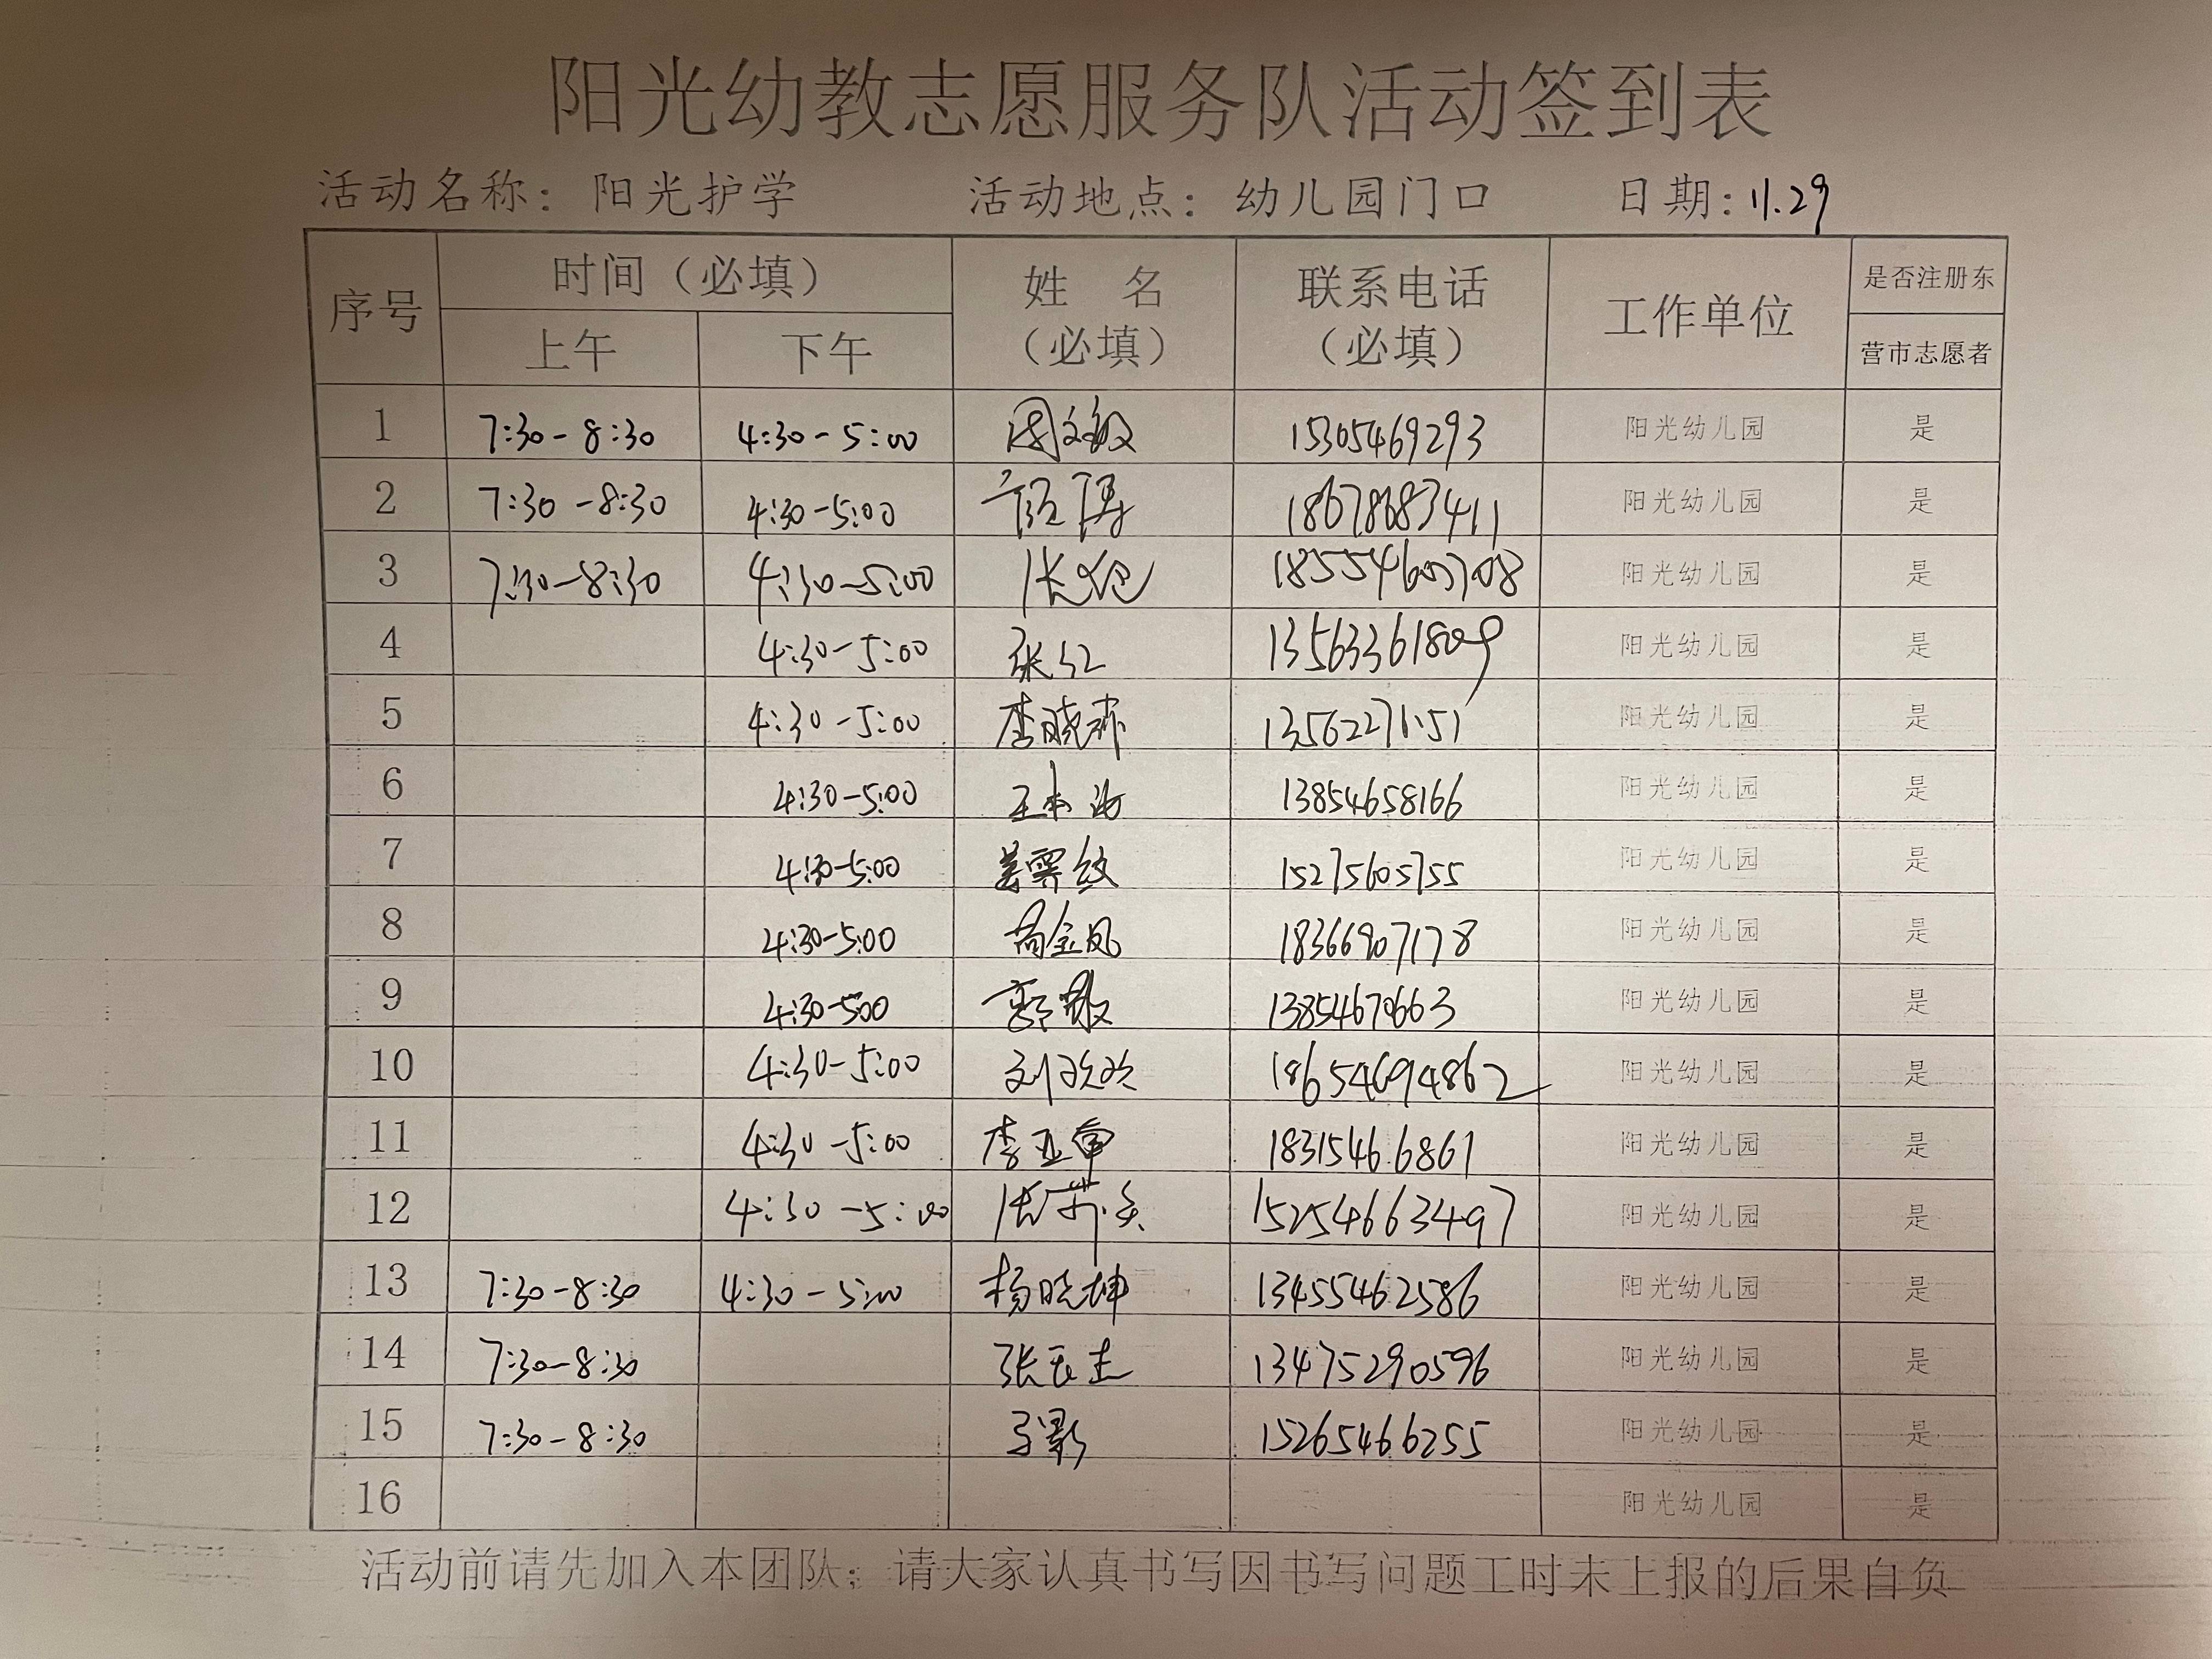 阳光幼教志愿服务队活动签到表
活动名称：阳光护学 活动地点：幼儿园门口 日期：11.29
序号 时间（必填） 姓 名（必填） 联系电话（必填） 工作单位 是否注册东营市志愿者
上午 下午
1 7:30-8:30 4:30-5:00 周文敏 15305469293 阳光幼儿园 是
2 7:30-8:30 4:30-5:00 18678683411 阳光幼儿园 是
3 7:30-8:30 4:30-5:00 阳光幼儿园 是
4 4:30-5:00 张红 13563361809 阳光幼儿园 是
5 4:30-5:00 李晓燕 阳光幼儿园 是
6 4:30-5:00 13854658166 阳光幼儿园 是
7 4:30-5:00 姜霁纹 15275605755 阳光幼儿园 是
8 4:30-5:00 尚金凤 18366907178 阳光幼儿园 是
9 4:30-500 郭敬 13854670663 阳光幼儿园 是
10 4:30-5:00 刘欢欢 18654694862 阳光幼儿园 是
11 4:30-5:00 李亚军 18315466861 阳光幼儿园 是
12 4:30-5:00 15254663497 阳光幼儿园 是
13 7:30-8:30 4:30-5:00 杨晓坤 13455462586 阳光幼儿园 是
14 7:30-8:30 13475290596 阳光幼儿园 是
15 7:30-8:30 15265466255 阳光幼儿园 是
16 阳光幼儿园 是
活动前请先加入本团队；请大家认真书写因书写问题工时未上报的后果自负